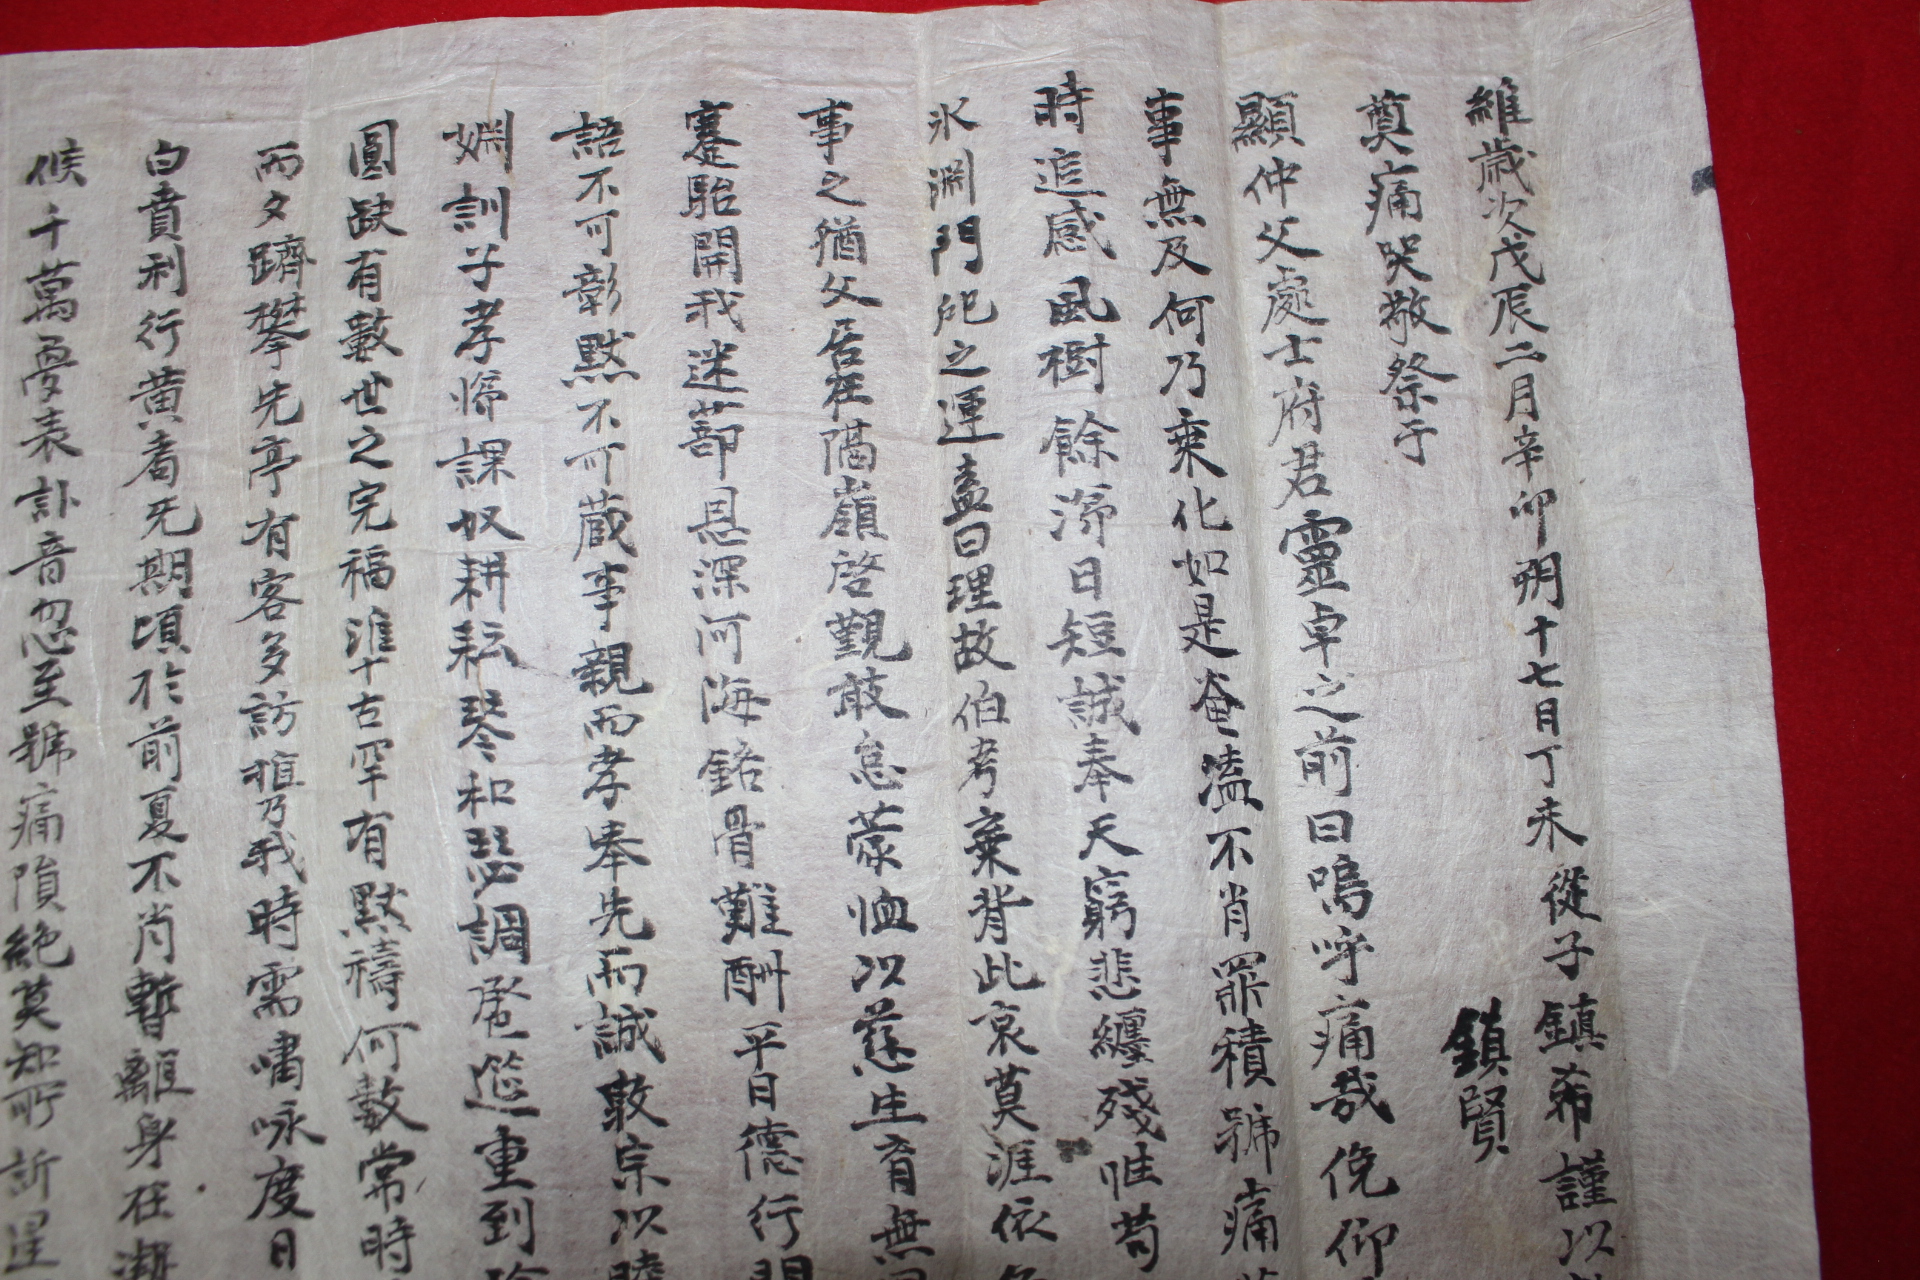 維歲次戊辰二月辛卯朔十七日丁未從子鎮希謹以
鎮賢
奠痛哭敬祭于
顯仲父處士府君靈卓之前曰嗚呼痛哉俛仰
事無及何乃乘化如是奄溘不肖罪積號痛
時追感風樹餘涕日短誠奉天窮悲纏殘惟苟
氷淵門祀之運蓋曰理故伯考棄背此哀莫涯依
事之猶父居在隔嶺啓覲敢怠蒙恤以慈生育無
蹇駘開我迷蔀恩深河海銘骨難酬平日德行
語不可彰默不可蔵事親而孝奉先而誠敦宗以睦
嫺訓子孝婦課奴耕耘琴和瑟調 筵重到
圓缺有數世之完福淮十古罕有默禱何數常時
而夕躋攀先亭有客多訪 乃我時需嘯咏度日
白賁利行黃耈旡期頃於前夏不肖暫離身在
候千萬憂表訃音忽至號痛隕絶莫知所